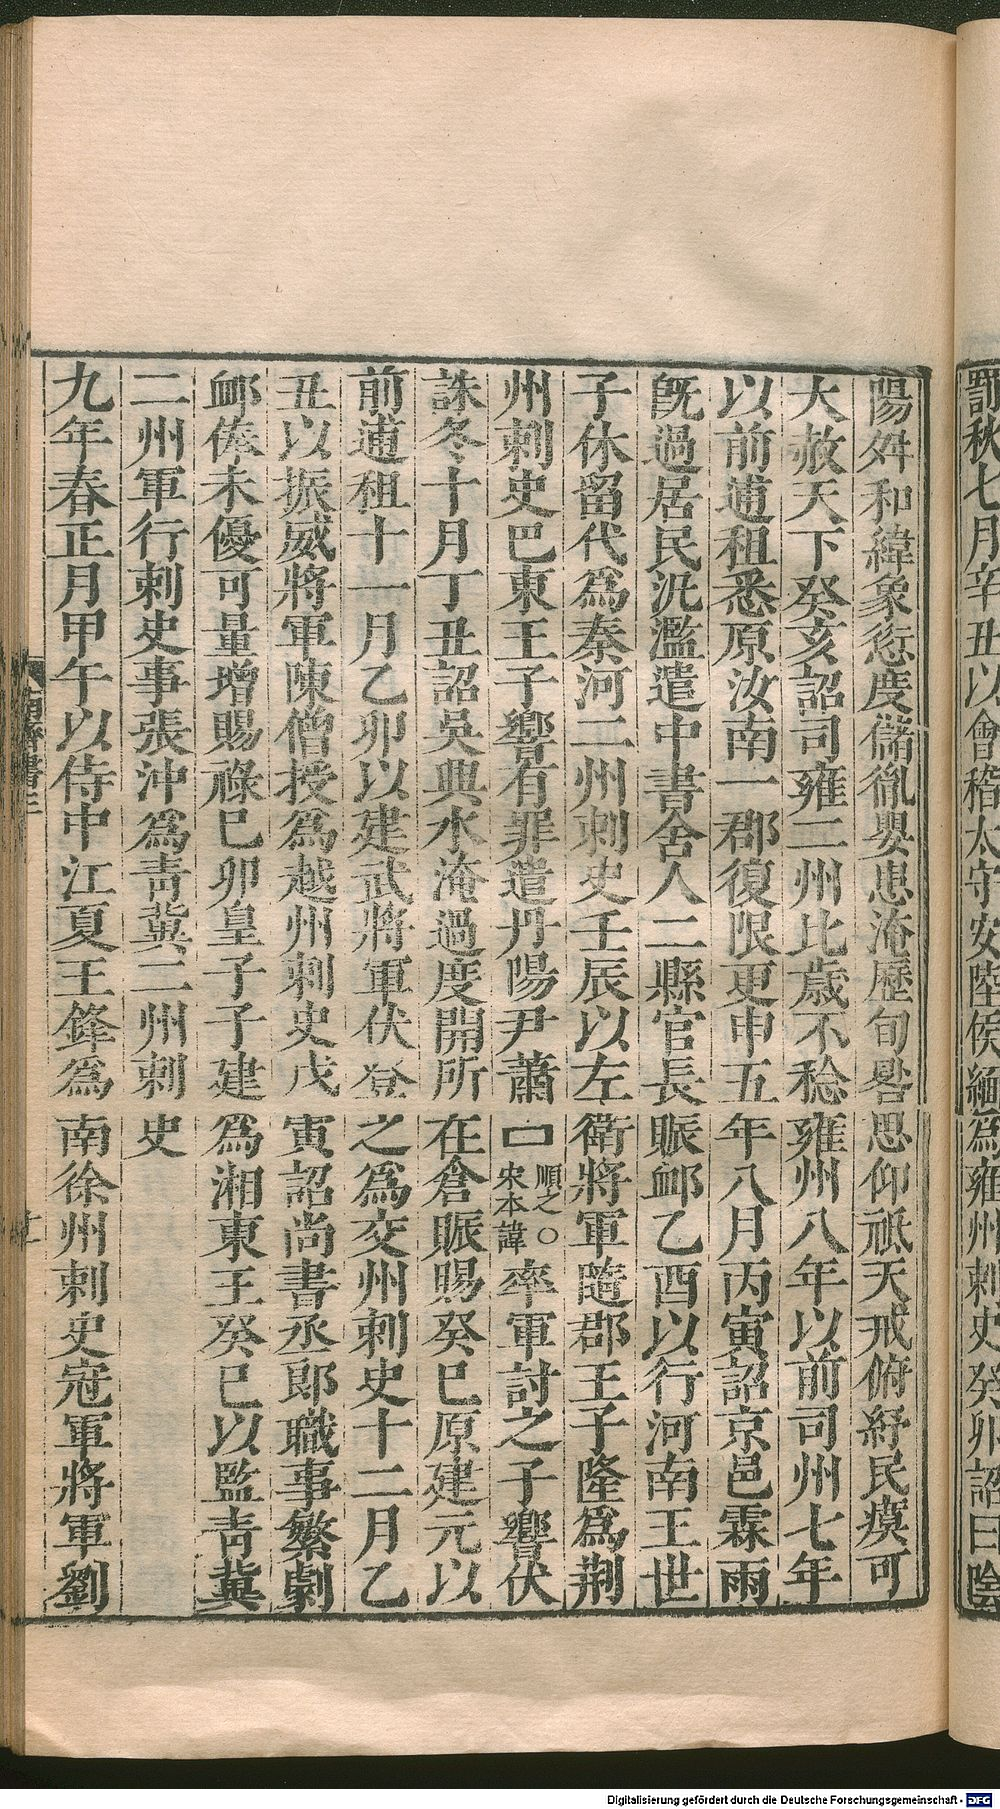 罰秋七月辛丑以會稽太守安陸侯緬爲雍州刺史癸卯詔曰陰
陽舛和緯象愆度儲胤嬰患淹歷旬晷思仰祗天戒俯紓民瘼可
大赦天下癸亥詔司雍二州比歲不稔雍州八年以前司州七年
以前逋租悉原汝南一郡復限更申五年八月丙寅詔京邑霖雨
旣過居民汎濫遣中書舍人二縣官長賑䘏乙酉以行河南王世
子休留代爲秦河二州刺史壬辰以左衛將軍隨郡王子隆爲荆
州刺史巴東王子響有罪遣丹陽尹蕭口順之〇宋本諱率軍討之子響伏
誅冬十月丁丑詔吳興水淹過度開所在倉賑賜癸巳原建元以
前逋租十一月乙卯以建武將軍伏登之爲交州刺史十二月乙
丑以振威將軍陳僧授爲越州刺史戊寅詔尚書丞郎職事繁劇
䘏俸未優可量增賜祿已卯皇子子建爲湘東王癸巳以監靑冀
二州軍行刺史事張沖爲靑冀二州刺史
九年春正月甲午以侍中江夏王鋒爲南徐州刺史冠軍將軍劉
南齊書三
十一
Digitalisierung gefördert durch die Deutsche Forschungsgemeinschaft - DFG